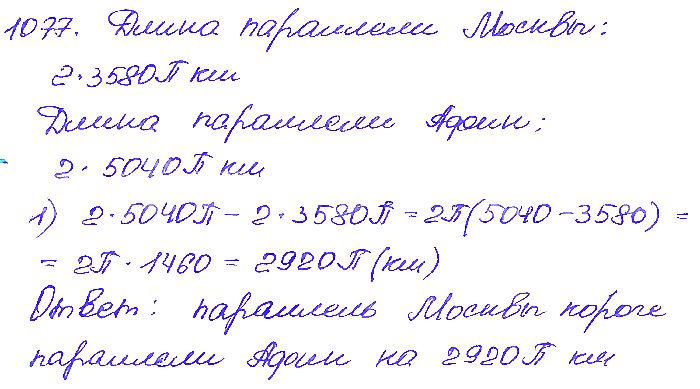 1077. Длина параллели Москвы:
2·3580П км
Длина параллели Афин:
2·5040П км
1) 2·5040П - 2·3580П = 2П(5040-3580) =
= 2П·1460 = 2920П (км)
Ответ: параллель Москвы короче
параллели Афин на 2920П км